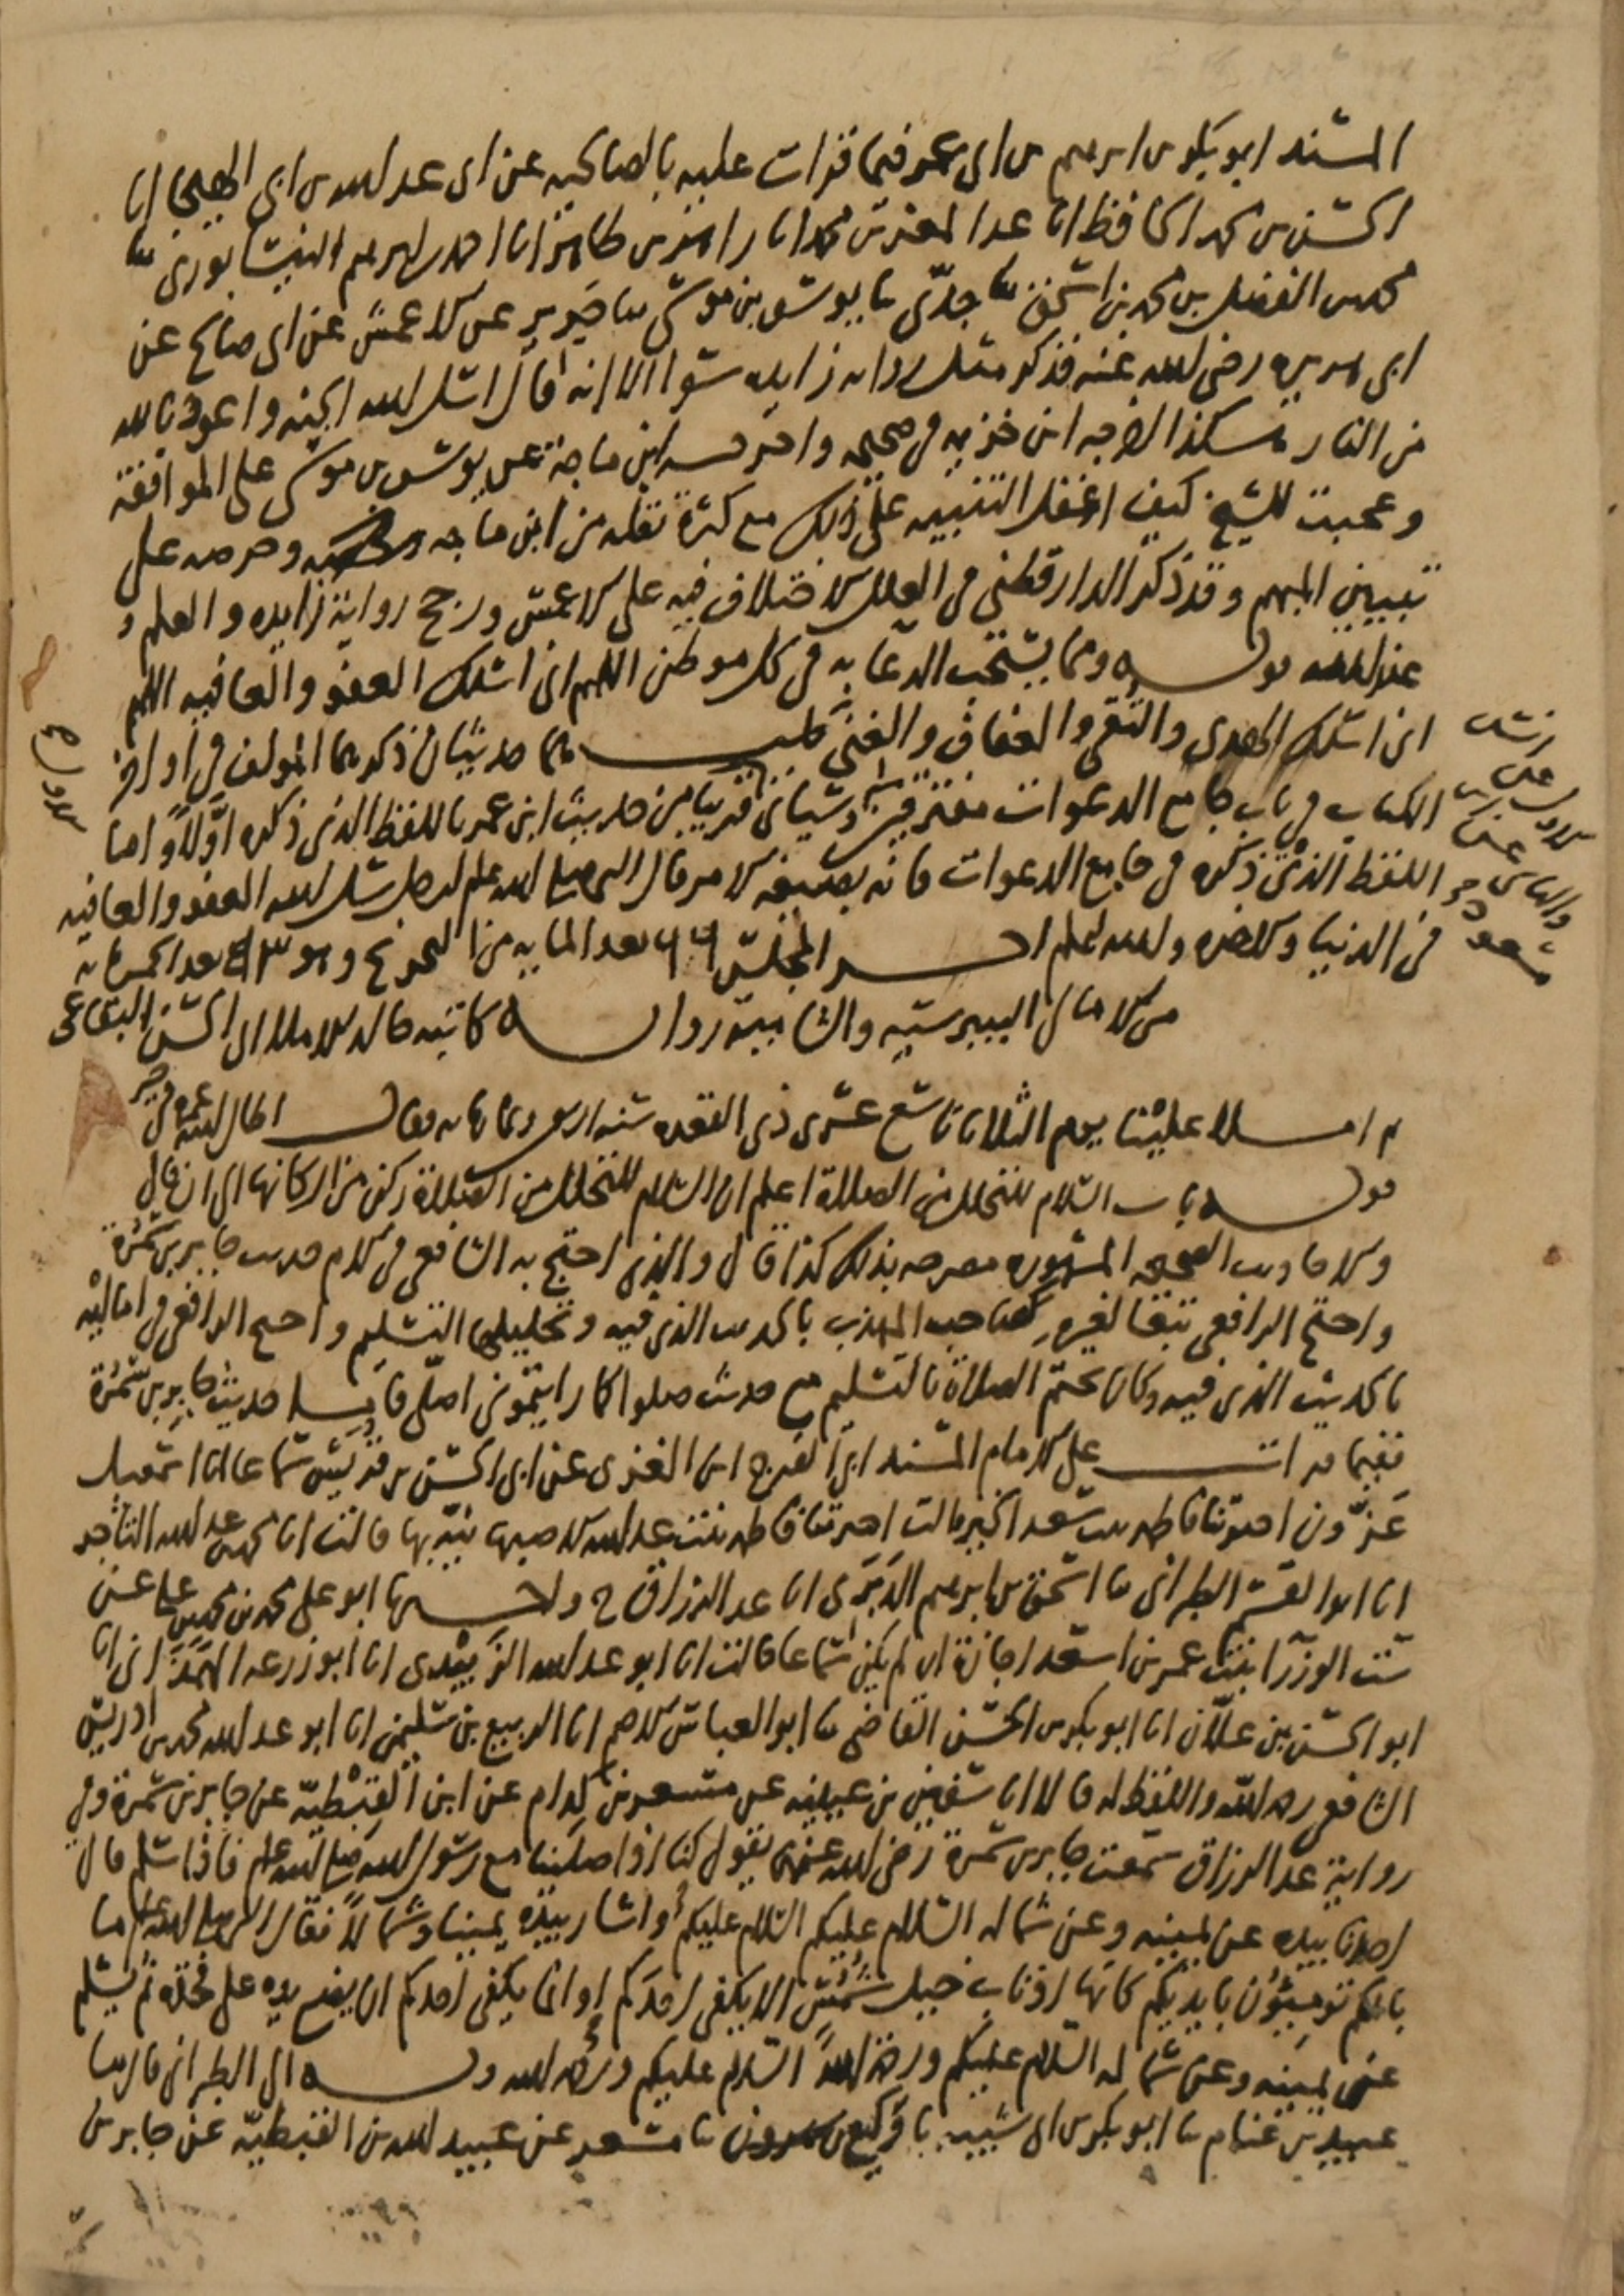 المسند ابو بكر بن ابرهيم بن ابي عمر فيما قرات عليه بالصالحيه عن ابي عبد الله بن ابي الهيجا انا
الحسن بن محمد الحافظ انا عبد المعز بن محمد انا زاهر بن طاهر انا احمد بن ابرهيم النيسابوري ثنا
محمد بن الفضل بن محمد بن اسحق ثنا جدي ثنا يوسف بن موسى ثنا جرير عن الاعمش عن ابي صالح عن
ابي هريره رضي الله عنه فذكر مثل روايه زايده سوا الا انه قال اسال الله الجنه واعوذ بالله
من النار هكذا اخرجه ابن خزيمه في صحيحه واخرجه ابن ماجة عن يوسف بن موسى على الموافقة
وعجبت للشيخ كيف اغفل التنبيه على ذلك مع كثرة نقله من ابن ماجه وحرصه على
تبيين المبهم وقد ذكر الدارقطني في العلل الاختلاف فيه على الاعمش ورجح رواية زايده والعلم
عند الله قوله ومما يستحب الدعا به في كل موطن اللهم اني اسلك العفو والعافيه اللهم
اني اسلك الهدى والتقى والعفاف والغنى قلت هما حديثان ذكرهما المولف في اواخر
الكتاب في باب جامع الدعوات مفترقين وسياتي قريبا من حديث ابن عمر باللفظ الذي ذكره اولا واما
اللفظ الذي ذكره في جامع الدعوات فانه بصيغه الامر قال النبي صلى الله عليه وسلم لرجل سل الله العفو والعافيه
في الدنيا والاخره والله اعلم اخر المجلس ٦٦ بعد المايه من التخريج وهو ٤١٣ بعد الخمسمايه
من الامالي البيبرسيه والثانية روايه كاتبه خالد الاملا ابي الحسن البقاعي
ثم املا علينا يوم الثلاثا تاسع عشري ذي القعده سنه اربعين وثمانمايه فقال اطال الله عمره في خير
قوله باب السلام للتحلل من الصلاة اعلم ان السلام للتحلل من الصلاة ركن من اركانها الى ان قال
والاحاديث الصحيحه المشهوره مصرحه بذلك كذا قال والذي احتج به الشافعي في الام حديث جابر بن سمرة
واحتج الرافعي تبعا لغيره كصاحب المهذب بالحديث الذي فيه وتحليلها التسليم واحتج الرافعي في اماليه
بالحديث الذي فيه وكان يختم الصلاة بالتسليم مع حديث صلوا كما رايتموني اصلي فاما حديث جابر بن سمرة
ففيما قرات على الامام المسند ابي الفرج ابن الغزي عن ابي الحسن بن قريش سماعا انا اسمعيل
عزون اخبرتنا فاطمه بنت سعد الخير قالت اخبرتنا فاطمه بنت عبد الله الاصبهانيه بها قالت انا محمد بن عبد الله التاجر
انا ابو القسم الطبراني ثنا اسحق بن ابرهيم الدبري انا عبد الرزاق ح واخبرنا ابو علي محمد بن محمد بن علي عن
ست الوزرا بنت عمر بن اسعد اجازة ان لم يكن سماعا قالت انا ابو عبد الله الزبيدي انا ابو زرعه الهمداني انا
ابو الحسن بن علان انا ابو بكر بن الحسن القاضي ثنا ابو العباس الاصم انا الربيع بن سليمن انا ابو عبد الله محمد بن ادريس
الشافعي رحمه الله واللفظ له قالا انا سفين بن عيينه عن مسعر بن كدام عن ابن القبطيه عن جابر بن سمرة وفي
رواية عبد الرزاق سمعت جابر بن سمرة رضي الله عنهما يقول كنا اذا صلينا مع رسول الله صلى الله عليه وسلم فاذا سلم قال
احدنا بيده عن يمينه وعن شماله السلام عليكم السلام عليكم واشار بيده يمينا وشمالا فقال النبي صلى الله عليه وسلم ما
بالكم تومون بايديكم كانها اذناب خيل شمس الا يكفي احدكم او انما يكفي احدكم ان يضع يده على فخذه ثم يسلم
عن يمينه وعن شماله السلام عليكم ورحمة الله السلام عليكم ورحمه الله وبه الى الطبراني قال ثنا
عبيد بن غنام ثنا ابو بكر بن ابي شيبه ثنا وكيع ثنا مسعر عن عبيد الله بن القبطيه عن جابر بن